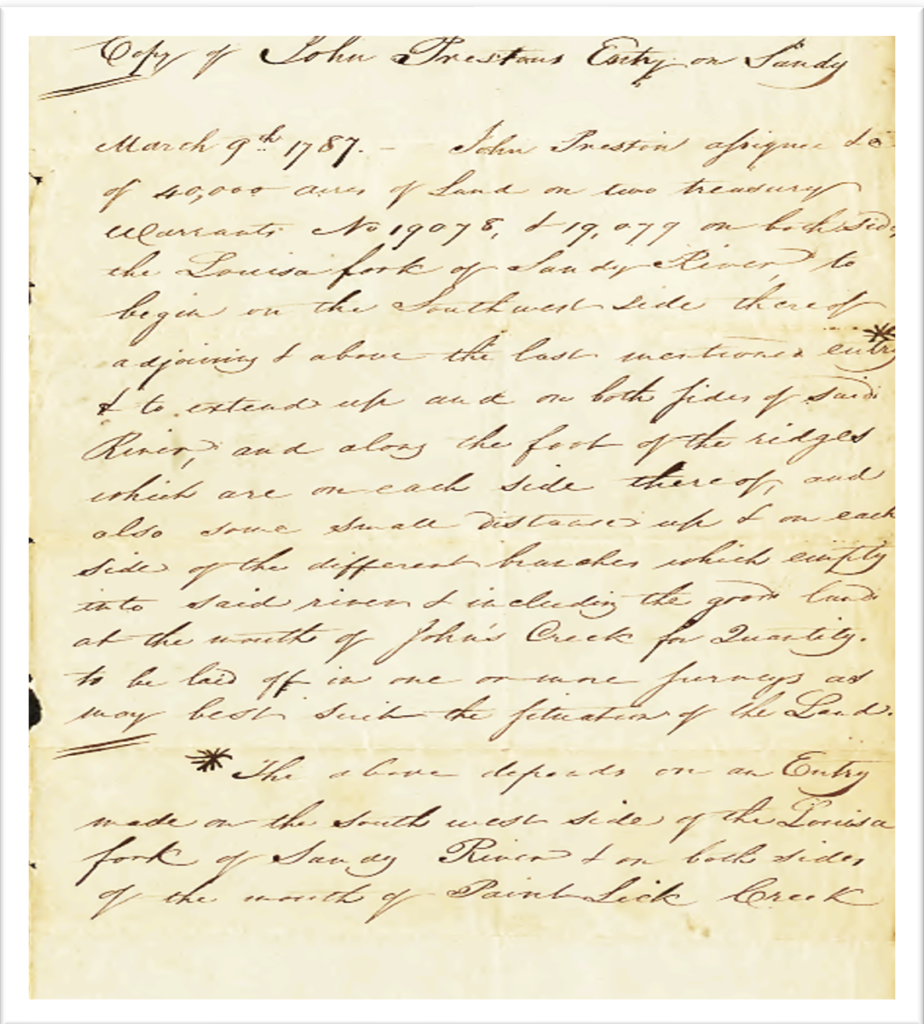 Copy of John Prestons Entry on Sandy
March 9th 1787. - John Preston assignee &c
of 40,000 acres of Land on two treasury
Warrants No 19078, & 19,079 on both Side
the Louisa fork of Sandy River, to
begin on the Southwest side thereof
adjoining & above the last mentioned entry *
& to extend up and on both sides of said
River, and along the foot of the ridges
which are on each side thereof, and
also some small distance up & on each
side of the different branches which empty
into said river & including the good land
at the mouth of John's Creek for Quantity.
to be laid off in one or more surveys as
may best suit the situation of the Land.
* The above depends on an Entry
made on the south west side of the Louisa
fork of Sandy River & on both sides
of the mouth of Paint Lick Creek